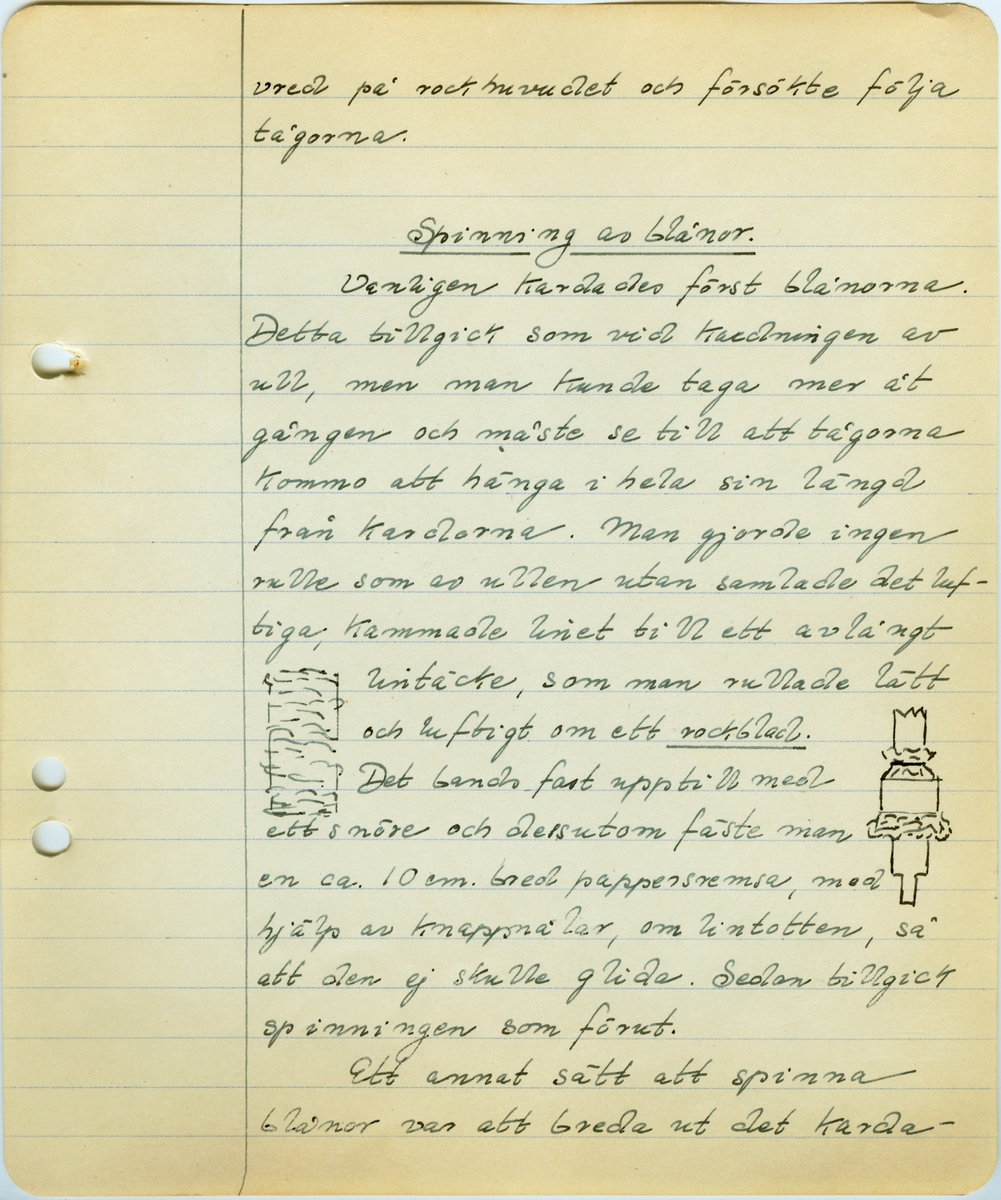 vred på rockhuvudet och försökte följa
tågorna.
Spinning av blånor.
Vanligen kardades först blånorna.
Detta tillgick som vid kardningen av
ull, men man kunde taga mer åt
gången och måste se till att tågorna
kommo att hänga i hela sin längd
från kardorna. Man gjorde ingen
rulle som av ullen utan samlade det luf-
tiga, kammade linet till ett avlångt
lintäcke, som man rullade lätt
och luftigt om ett rockblad.
Det bands fast upptill med
ett snöre och dessutom fäste man
en ca. 10 cm. bred pappersremsa, med
hjälp av knappnålar, om lintotten, så
att den ej skulle glida. Sedan tillgick
spinningen som förut.
Ett annat sätt att spinna
blånor var att breda ut det karda-